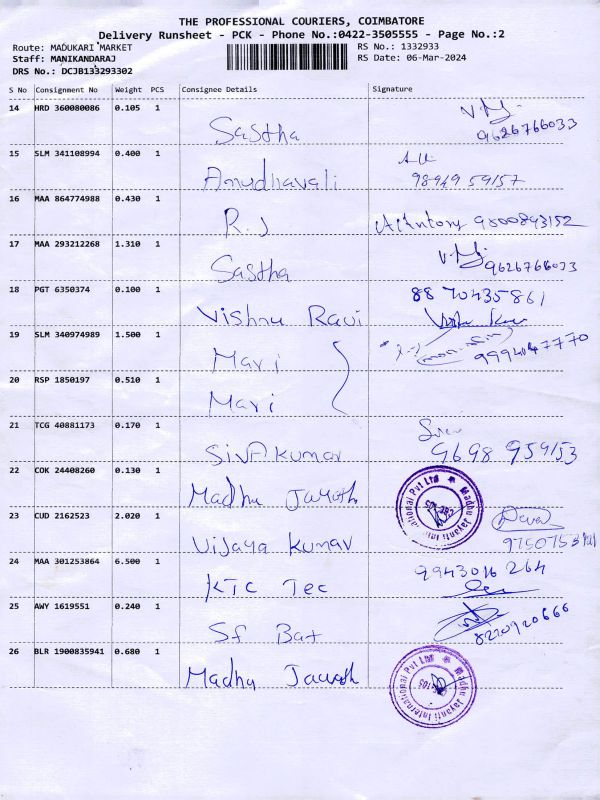 THE PROFESSIONAL COURIERS, COIMBATORE
Delivery Runsheet - PCK - Phone No.:0422-3505555 - Page No.:2
Route: MADUKARI MARKET
RS No.: 1332933
Staff: MANIKANDARAJ
RS Date: 06-Mar-2024
DRS No.: DCJB133293302
S No Consignment No Weight PCS Consignee Details Signature
14 HRD 360080086 0.105 1
Sastha 9626766033
15 SLM 341108994 0.400 1
Anudhavali
16 MAA 864774988 0.430 1
R.J
17 MAA 293212268 1.310 1
Sastha 9626766033
18 PGT 6350374 0.100 1 8870435861
Vishnu Ravi
19 SLM 340974989 1.500 1
Mari
20 RSP 1850197 0.510 1
Mari
21 TCG 40881173 0.170 1
SivA kumar 9698 959153
22 COK 24408260 0.130 1
Madhu Jayanti International Pvt Ltd
Madhu
23 CUD 2162523 2.020 1
Vijaya Kumar
24 MAA 301253864 6.500 1 9943016 264
KTC Tec
25 AWY 1619551 0.240 1
8220920666
26 BLR 1900835941 0.680 1
Madhu Jayanti International Pvt Ltd
Madhu